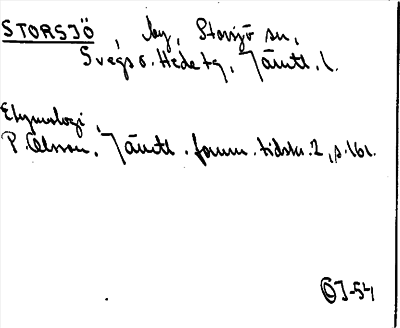 STORSJÖ, by, Storsjö sn,
Svegs o. Hede tg, Jämtl. l.
Etymologi,
P. Olsson. Jämtl. fornm. tidskr. 2, s. 161.
ÖJ-54